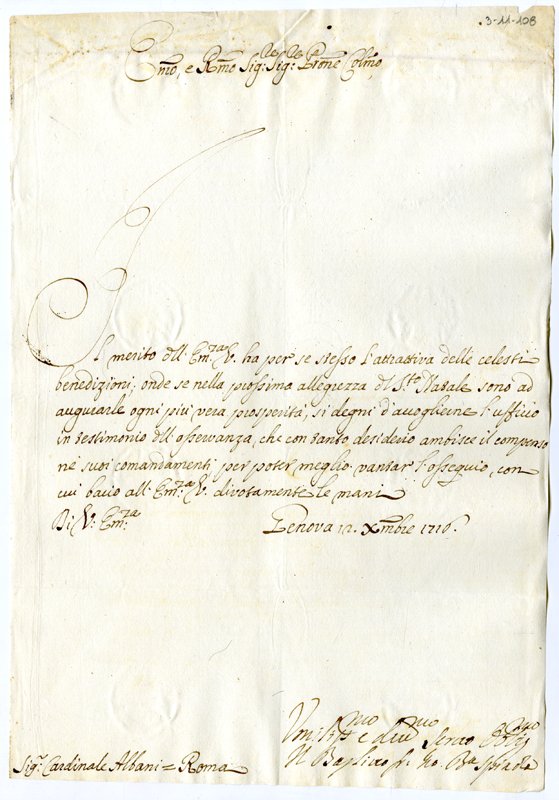 3-11-108
Emo, e Rmo Sig:re Sig:re Prone Colmo
Il merito dll'Em:za V. ha per se stesso l'attrattiva delle celesti
benedizioni; onde se nella prossima allegrezza dl S:to Natale sono ad
augurarle ogni più vera prosperità, si degni d'accoglierne l'ufficio
in testimonio dll'osservanza, che con tanto desiderio ambisce il compenso
ne suoi comandamenti per poter meglio vantar l'ossequio, con
cui bacio all'Em:za V. divotamente le mani
Di V: Em:za
Genova 12. Xmbre 1716.
Umiliss:mo e diu:mo Servo
Il Bagliuo fr. Gio. Ba Spinola
Sig:r Cardinale Albani = Roma